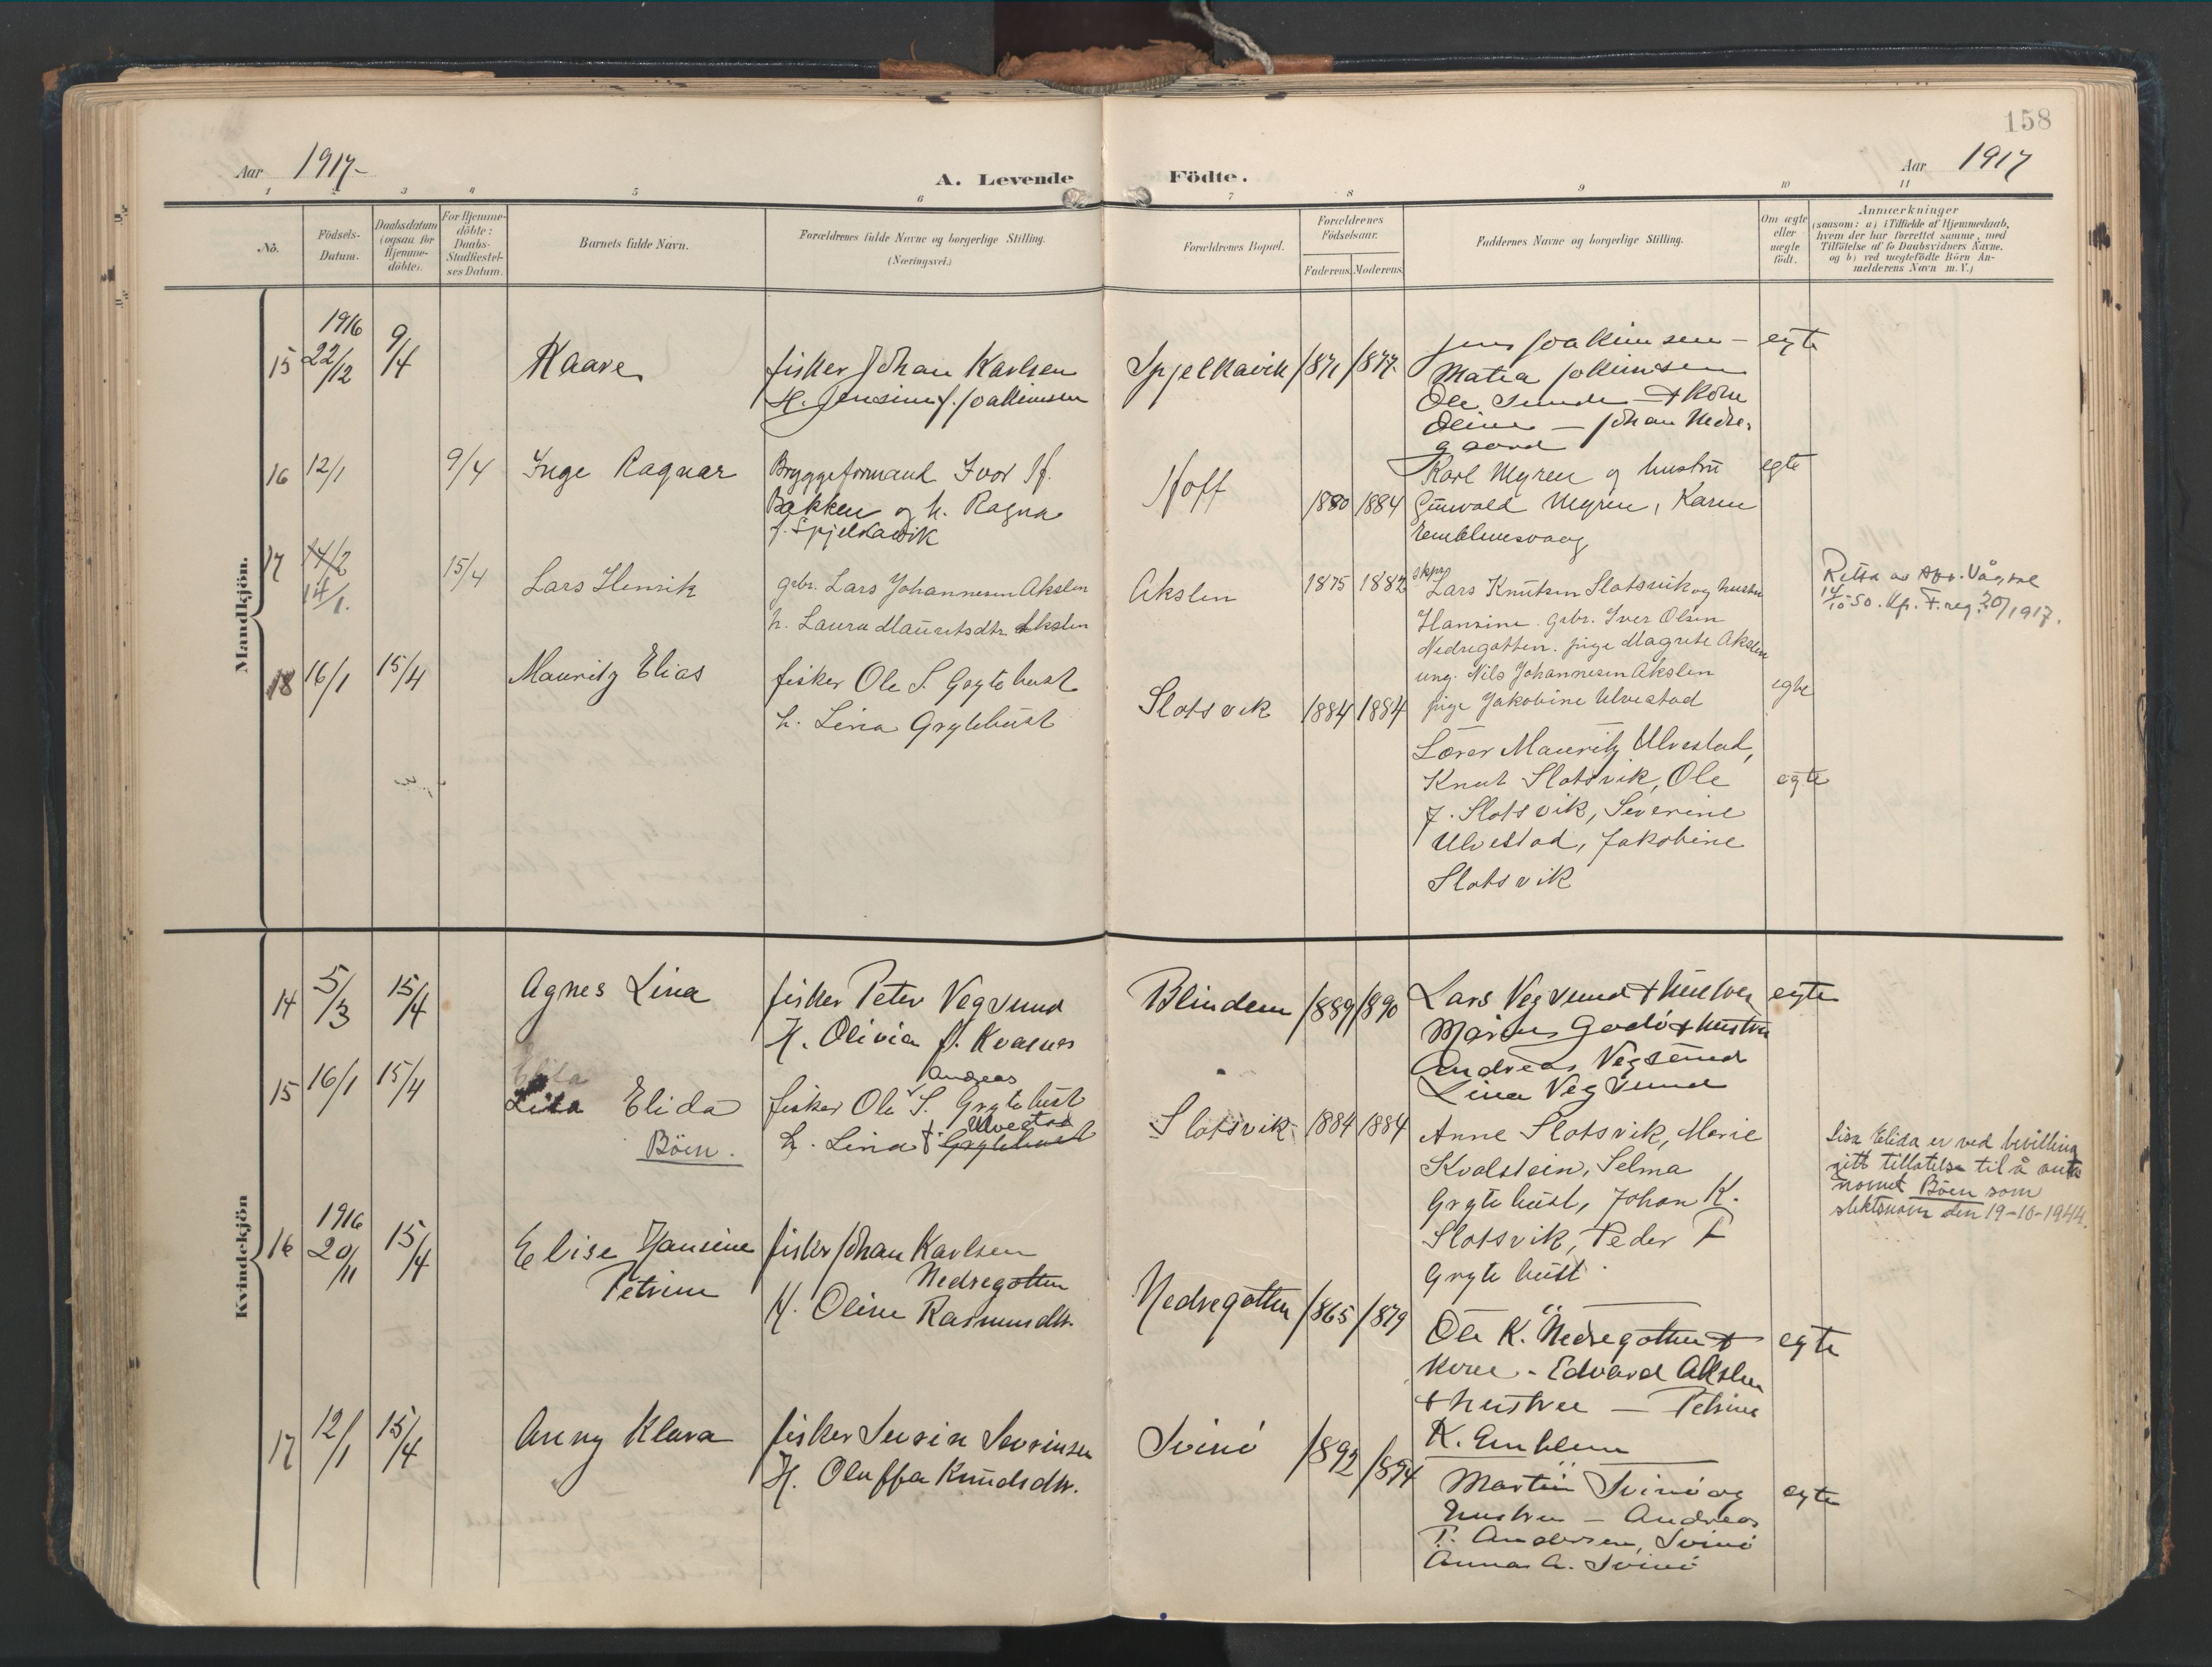 158
Aar 1917-
A. Levende Födte.
Aar 1917
1 2 3 4 5 6 7 8 9 10 11
No.
Födsels-Datum.
Daabsdatum (ogsaa for Hjemme-döbte).
For Hjemme-döbte: Daabs-Stadfæstel-ses Datum.
Barnets fulde Navn.
Forældrenes fulde Navne og borgerlige Stilling. (Næringsvei.)
Forældrenes Bopæl.
Forældrenes Födselsaar.
Faderens. Moderens.
Faddernes Navne og borgerlige Stilling.
Om ægte eller uægte födt.
Anmærkninger
(saasom: a) i Tilfælde af Hjemmedaab,
hvem der har forrettet samme, med
Tilföielse af to Daabsvidners Navne,
og b) ved uegtefödte Börn An-
melderens Navn m. V.)
Mandkjön.
15 1916 22/12 9/4 Kaare
fisker Johan Karlsen
H. Jensine f. Joakimsen
Spjelkavik 1871 1877
Jens Joakimsen - egte
Matea Jokimsen
Ole Sunde + Kone
Oline - Johan Nedre-
gaard
16 12/1 9/4 Inge Ragnar
Bryggeformand Ivar
Bakken og h. Ragna
f. Spjelkavik
Hoff 1880 1884
Karl Myren og hustru egte
Gunvald Myren, Karen
Emblemsvaag
17 14/2 14/1. 15/4 Lars Henrik
grbr. Lars Johannesen Akslen
h. Laura Mauritsdtr. Akslen
Akslen 1875 1882
skpr Lars Knutsen Slotsvik og hustru
Hansine. grbr. Iver Olsen
Nedregotten. pige Magrete Akslen
ung. Nils Johannesen Akslen
pige Jakobine Ulvestad egte
Retta av
14/10 50. Kp. F. reg. 20/1917.
18 16/1 15/4 Mauritz Elias
fisker Ole S. Grytehust
h. Lina Grytehust
Slotsvik 1884 1884
Lærer Mauritz Ulvestad,
Knut Slotsvik, Ole egte
J. Slotsvik, Severine
Ulvestad, Jakobine
Slotsvik
Kvindekjön
14 5/3 15/4 Agnes Lina
fisker Peter Vegsund
H. Olivia f. Kvasnes
Blindem 1889 1890
Lars Vegsund + hustru egte
Marius Godö + hustru
Andreas Vegsund
Lina Vegsund
15 16/1 15/4 Lisa Elida
Böen.
Andreas
fisker Ole S. Grytehust
Ulvestad
h. Lina f. Grytehust
Slotsvik 1884 1884
Anne Slotsvik, Marie
Kvalstein, Selma
Grytehust, Johan K.
Slotsvik, Peder F
Grytehust
Lisa Elida er ved bevilling
gitt tillatelse til å anta
navnet Böen som
slektsnavn den 19-10-1944.
16 1916 20/11 15/4 Elise Jansine
Petrine
fisker Johan Karlsen
Nedregotten
H. Oline Rasmusdtr.
Nedregotten 1865 1879
Ole K. Nedregotten + egte
Kone - Edvard Akslen
+ hustru - Petrine
K. Emblem
17 12/1 15/4 Anny Klara
fisker Sevrin Sevrinsen
H. Oluffa Knudsdtr.
Svinö 1892 1894
Martin Svinö og egte
hustru - Andreas
P. Andersen, Svinö
Anna A. Svinö